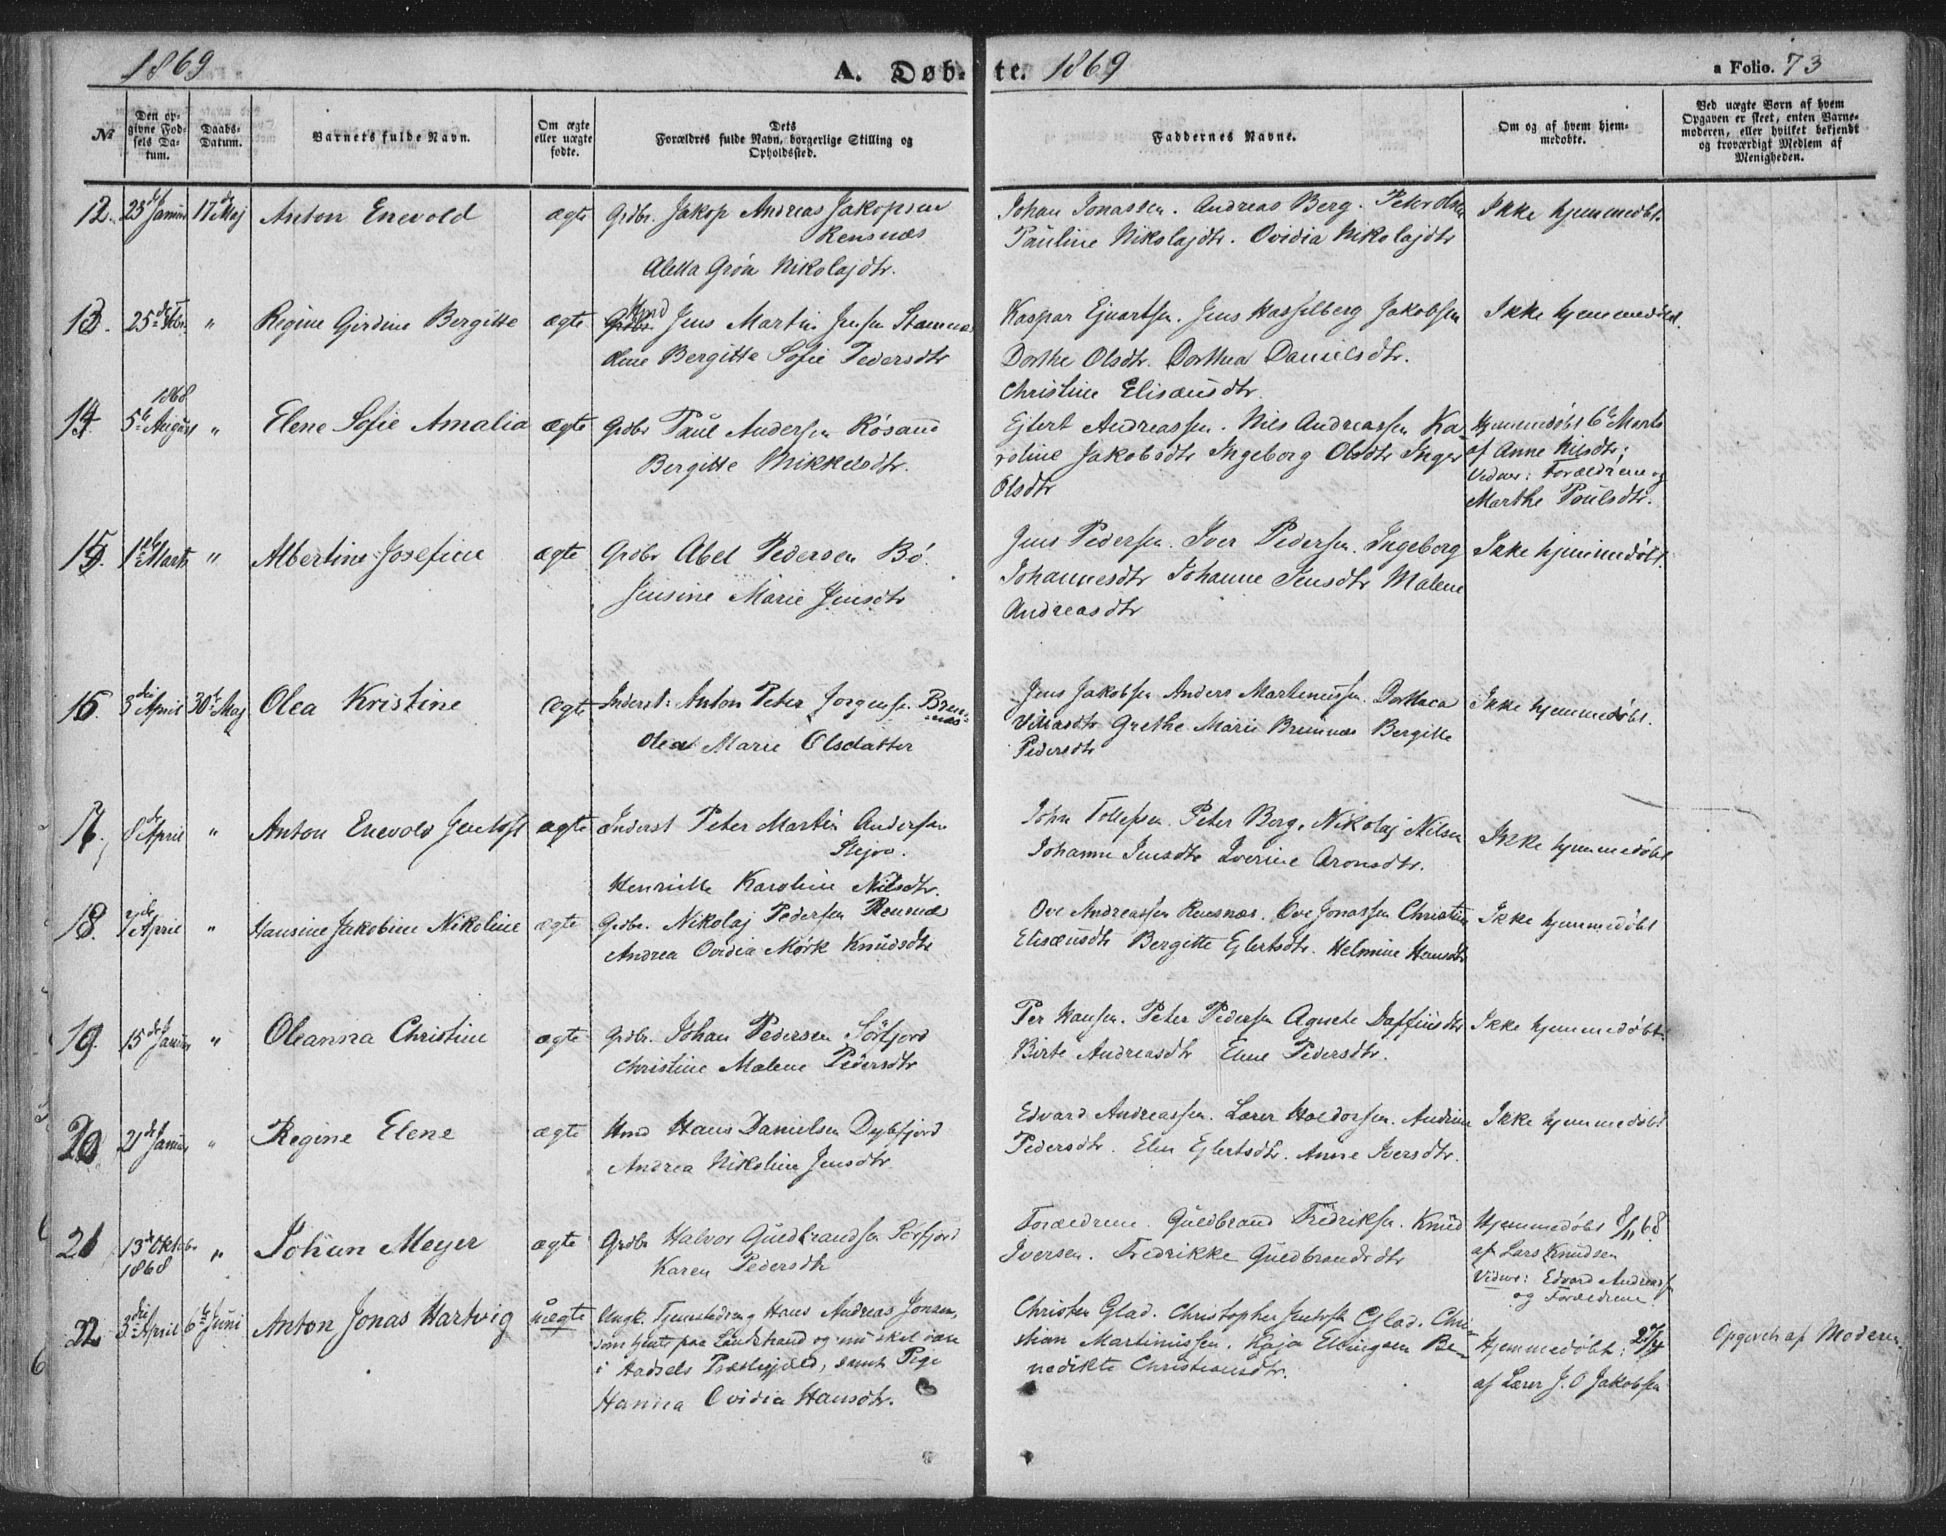 1869 A. Døb- te. 1869 a Folio. 73
No
Den op-
givne Fød-
sels Da-
tum.
Daabs-
Datum.
Barnets fulde Navn.
Om ægte
eller uægte
fødte.
Dets
Forældres fulde Navn, borgerlige Stilling og
Opholdssted.
Faddernes Navne.
Om og af hvem hjem-
medøbte.
Ved uægte Børn af hvem
Opgaven er skeet, enten Barne-
moderen, eller hvilket bekjendt
og troværdigt Medlem af
Menigheden.
12. 23de Januar 17de Maj Anton Enevold ægte Grdbr. Jakop Andreas Jakopsen
Rensnæs
Aletta Grøn Nikolajdtr.
Johan Jonassen. Andreas Berg. Peter Olsen
Pauline Nikolajdtr. Ovidia Nikolajdtr
Ikke hjemmedøbt.
13. 25de Febr. " Regine Gjerdine Bergitte ægte Hmd Jens Martin Jensen Stamnæs
Oline Bergitte Sofie Pedersdtr
Kaspar Ejnartsen. Jens Hasselberg Jakobsen
Dorthe Olsdtr. Dorthea Danielsdtr.
Christine Elisæusdtr
Ikke hjemmedøbt.
14. 1868
5te August " Elene Sofie Amalia ægte Grdbr Paul Andersen Røsand
Bergitte Mikkelsdtr.
Ejlert Andreassen. Nils Andreassen Ka-
roline Jakobsdtr Ingeborg Olsdtr Inger
Olsdtr
Hjemmedøbt 6te Marts
af Anne Nilsdtr;
Vidner: Forældrene og
Marthe Poulsdtr.
15. 1ste Marts " Albertine Josefine ægte Grdbr Abel Pedersen Bø.
Jensine Marie Jensdtr
Jens Pedersen. Iver Pedersen. Ingeborg
Johannesdtr Johanne Jensdtr Malene
Andreasdtr
Ikke hjemmedøbt.
16. 3die April 30te Maj Olea Kristine ægte Inderst: Anton Peter Jørgensen Brem-
næs
Olea Marie Olsdatter
Jens Jakobsen Anders Martinussen. Dorthea
Villasdtr Grethe Marie Bremnæs Bergitte
Pedersdtr
Ikke hjemmedøbt.
17. 8de April " Anton Enevold Jentoft ægte Inderst Peter Martin Andersen
Stejro.
Henriette Karoline Nilsdtr.
John Tollefsen. Peter Berg. Nikolaj Nilsen
Johanne Jensdtr Iverine Aronsdtr.
Ikke hjemmedøbt
18. 7de April " Hansine Jakobine Nikoline ægte Grdbr. Nikolaj Pedersen Rensnæs
Andrea Ovidia Mørk Knudsdtr
Ove Andreassen Rensnæs. Ove Jonassen Christine
Elisæusdtr Bergitte Ejlertsdtr. Helmine Hansdtr
Ikke hjemmedøbt
19. 15de Januar " Oleanna Christine ægte Grdbr. Johan Pedersen Sörfjord
Christine Malene Pedersdtr
Per Hansen. Peter Pedersen Agnete Daffinsdtr
Birte Andreasdtr Elene Pedersdtr.
Ikke hjemmedøbt.
20. 21de Januar " Regine Elene ægte Hmd Hans Danielsen Dybfjord
Andrea Nikoline Jensdtr.
Edvard Andreassen. Lærer Holdorsen. Andrine
Pedersdtr. Elen Ejlertsdtr. Anne Iversdtr.
Ikke hjemmedøbt
21 13de Oktober
1868 " Johan Meyer ægte Grdbr Halvor Guldbrandsen Sörfjord
Karen Pedersdtr
Forældrene. Guldbrand Fredriksen. Knud
Iversen. Fredrikke Guldbrandsdtr
Hjemmedøbt 8/11 68
af Lars Knudsen
Vidner: Edvard Andreassen
og Forældrene.
22. 3die April 6te Juni Anton Jonas Hartvig uægte Ungk. Tjenestedreng Hans Andreas Jonsen,
som tjente paa Landstrand og nu skal være
i Hadsels Præstegjeld, samt Pige
Hanna Ovidia Hansdtr.
Christen Glad. Christopher Jentoft Glad. Chri-
stian Martinussen. Kaja Ellingsen Be-
nedikte Christiansdtr.
Hjemmedøbt:
af Lærer J. O Jakobsen
Opgivet af Moderen